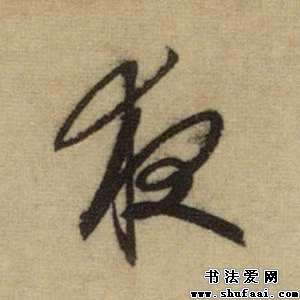 夜
书法爱网
www.shufaai.com